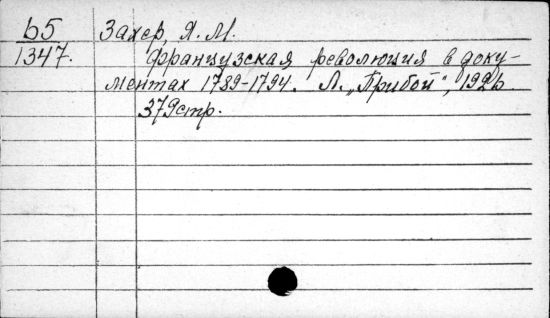 Б5 Захер, Я. М.
1347. Французская революция в доку-
ментах 1789-1794. Л. „Прибой“, 1926.
379стр.